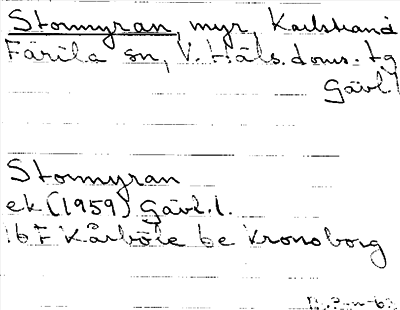 Stormyran, myr, Karlstrand
Färila sn, V. Häls. doms. tg
Gävl. l
Stormyran
ek (1959) Gävl. l.
16 F Kårböle be Kronoborg